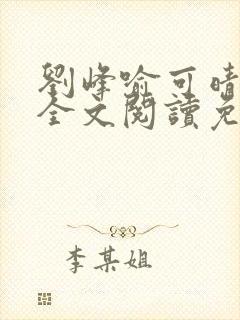 劉峰喻可晴
全文閱讀免
李某姐